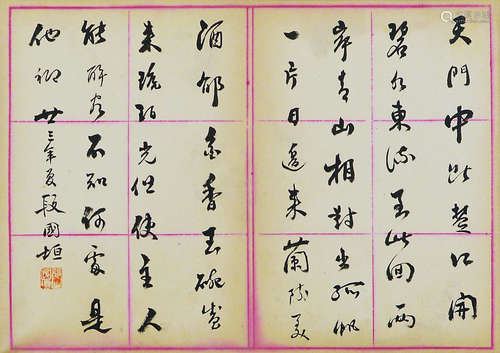 天門中斷楚江開
碧水東流至此回兩
岸青山相對出孤帆
一片日邊來蘭陵美
酒郁金香玉碗盛
來琥珀光但使主人
能醉客不知何處是
他鄉 廿三年夏 段國垣